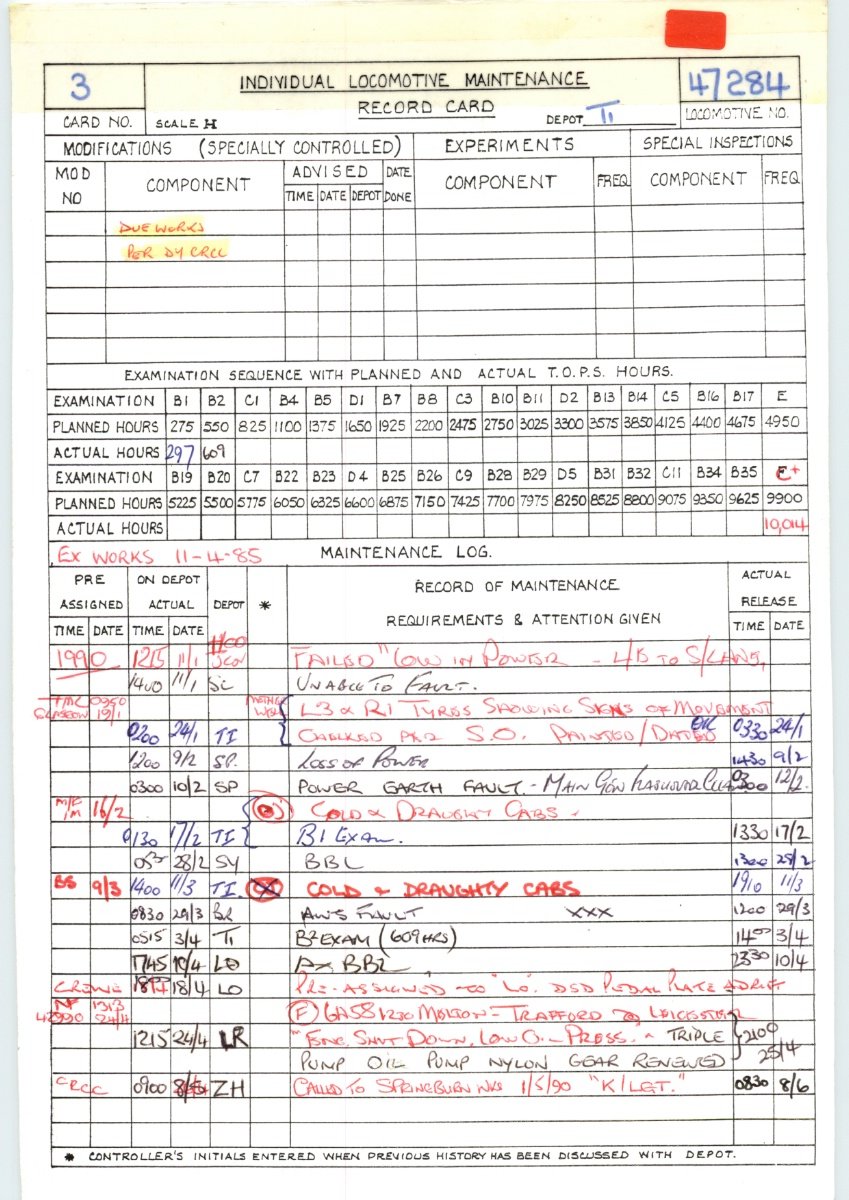 3 INDIVIDUAL LOCOMOTIVE MAINTENANCE 47284
RECORD CARD
CARD NO. SCALE H DEPOT TI LOCOMOTIVE NO.
MODIFICATIONS (SPECIALLY CONTROLLED) EXPERIMENTS SPECIAL INSPECTIONS
MOD NO COMPONENT ADVISED DATE DONE COMPONENT FREQ COMPONENT FREQ
TIME DATE DEPOT
DUE WORKS
PER DY CRCC
EXAMINATION SEQUENCE WITH PLANNED AND ACTUAL T.O.P.S. HOURS.
EXAMINATION B1 B2 C1 B4 B5 D1 B7 B8 C3 B10 B11 D2 B13 B14 C5 B16 B17 E
PLANNED HOURS 275 550 825 1100 1375 1650 1925 2200 2475 2750 3025 3300 3575 3850 4125 4400 4675 4950
ACTUAL HOURS 297 609
EXAMINATION B19 B20 C7 B22 B23 D4 B25 B26 C9 B28 B29 D5 B31 B32 C11 B34 B35 E+
PLANNED HOURS 5225 5500 5775 6050 6325 6600 6875 7150 7425 7700 7975 8250 8525 8800 9075 9350 9625 9900
ACTUAL HOURS 10,014
EX WORKS 11-4-85 MAINTENANCE LOG.
PRE ASSIGNED ON DEPOT ACTUAL DEPOT * RECORD OF MAINTENANCE ACTUAL RELEASE
REQUIREMENTS & ATTENTION GIVEN
TIME DATE TIME DATE TIME DATE
1990 1215 11/1 FAILED "LOW IN POWER
1400 11/1 SL UNABLE TO FAULT.
GLASGOW 19/1 L3 & R1 TYRES SHOWING SIGNS OF MOVEMENT
0200 24/1 TI CHECKED AND S.O. PAINTED/DATED OK 0330 24/1
1200 9/2 SP. LOSS OF POWER 1430 9/2
0300 10/2 SP POWER EARTH FAULT - MAIN GEN 12/2
16/2 COLD & DRAUGHT CABS.
0130 17/2 TI B1 EXAM. 1330 17/2
28/2 SY BBL 1300 28/2
BS 9/3 1400 11/3 TI. COLD & DRAUGHTY CABS 1910 11/3
0830 29/3 BR AWS FAULT XXX 1200 29/3
0515 3/4 TI B2 EXAM (609 HRS) 1400 3/4
1745 10/4 LO BBL 2330 10/4
CREWE 18/4 LO PRE-ASSIGNED TO "LO". DSD PEDAL PLATE ADRIFT
1313 24/4 (F) 6A58 1230 - TRAFFORD @ LEICESTER
1215 24/4 LR "ENG. SHUT DOWN, LOW OIL PRESS." TRIPLE 2100
PUMP OIL PUMP NYLON GEAR RENEWED 25/4
CRCC 0900 ZH CALLED TO SPRINGBURN WKS 1/5/90 "K/LGT." 0830 8/6
* CONTROLLER'S INITIALS ENTERED WHEN PREVIOUS HISTORY HAS BEEN DISCUSSED WITH DEPOT.